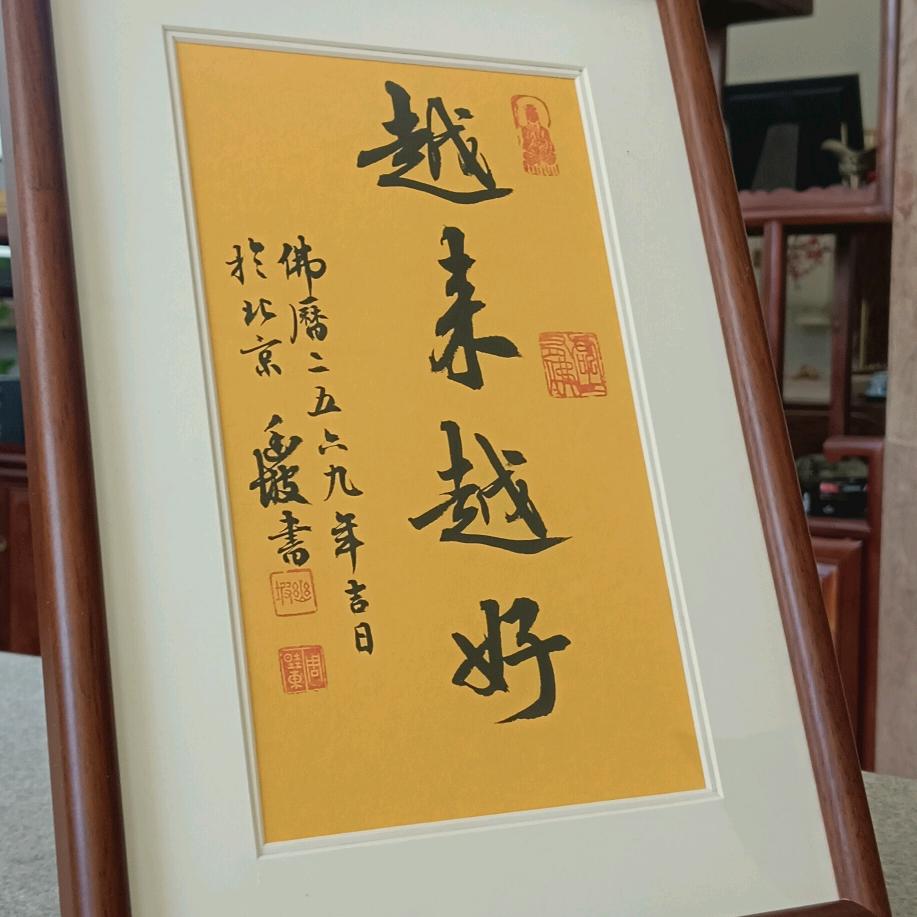 越来越好
佛曆二五六九年吉日
於北京 幽坡書
幽坡